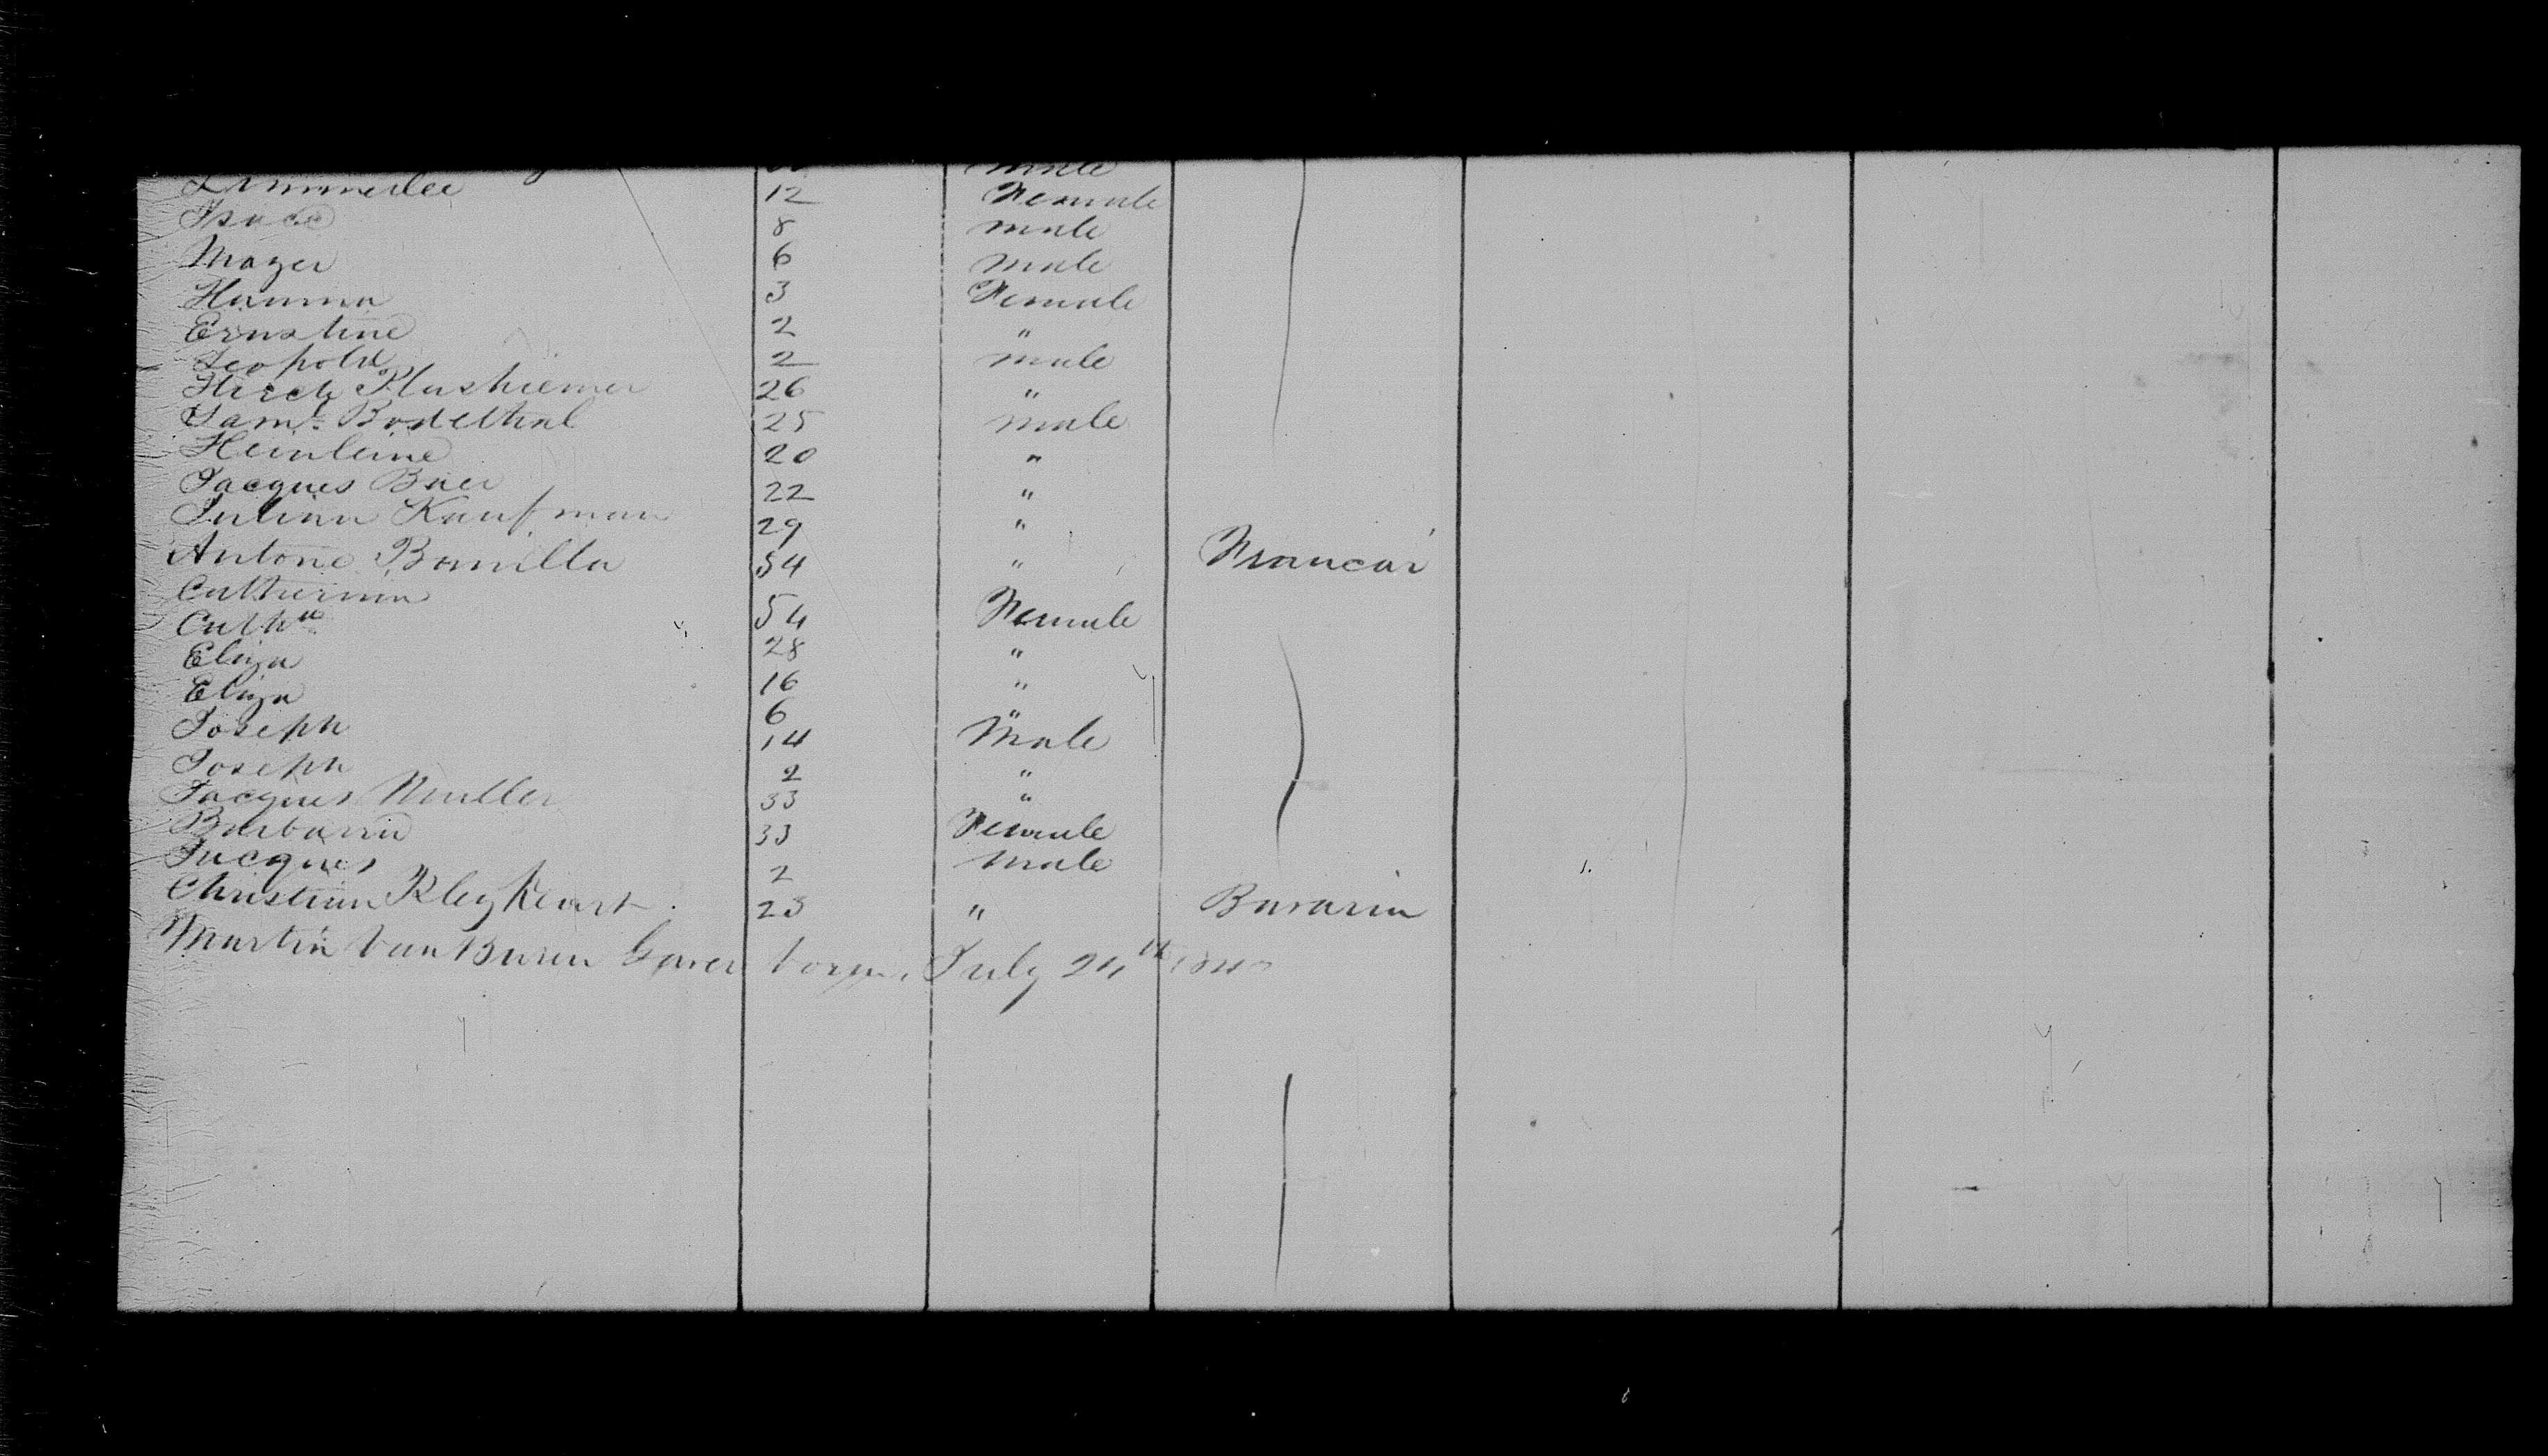 male
12 Female
Isaac 8 male
Mayer 6 male
Hanna 3 Female
Ernstine 2 "
Leopold 2 male
Hirch 26 "
Saml. 25 male
Heinleine 20 "
Jacques Baer 22 "
Julian Kaufman 29 "
Antone Bamilla 54 " Francai
Catherina 54 Female
Cath 28 "
Eliza 16 "
Eliza 6 "
Joseph 14 Male
Joseph 2 "
Jacques Muller 33 "
Barbara 33 Female
Jacques 2 male
Christian 23 " Bavaria
Martin Van Buren born July 24th 1840